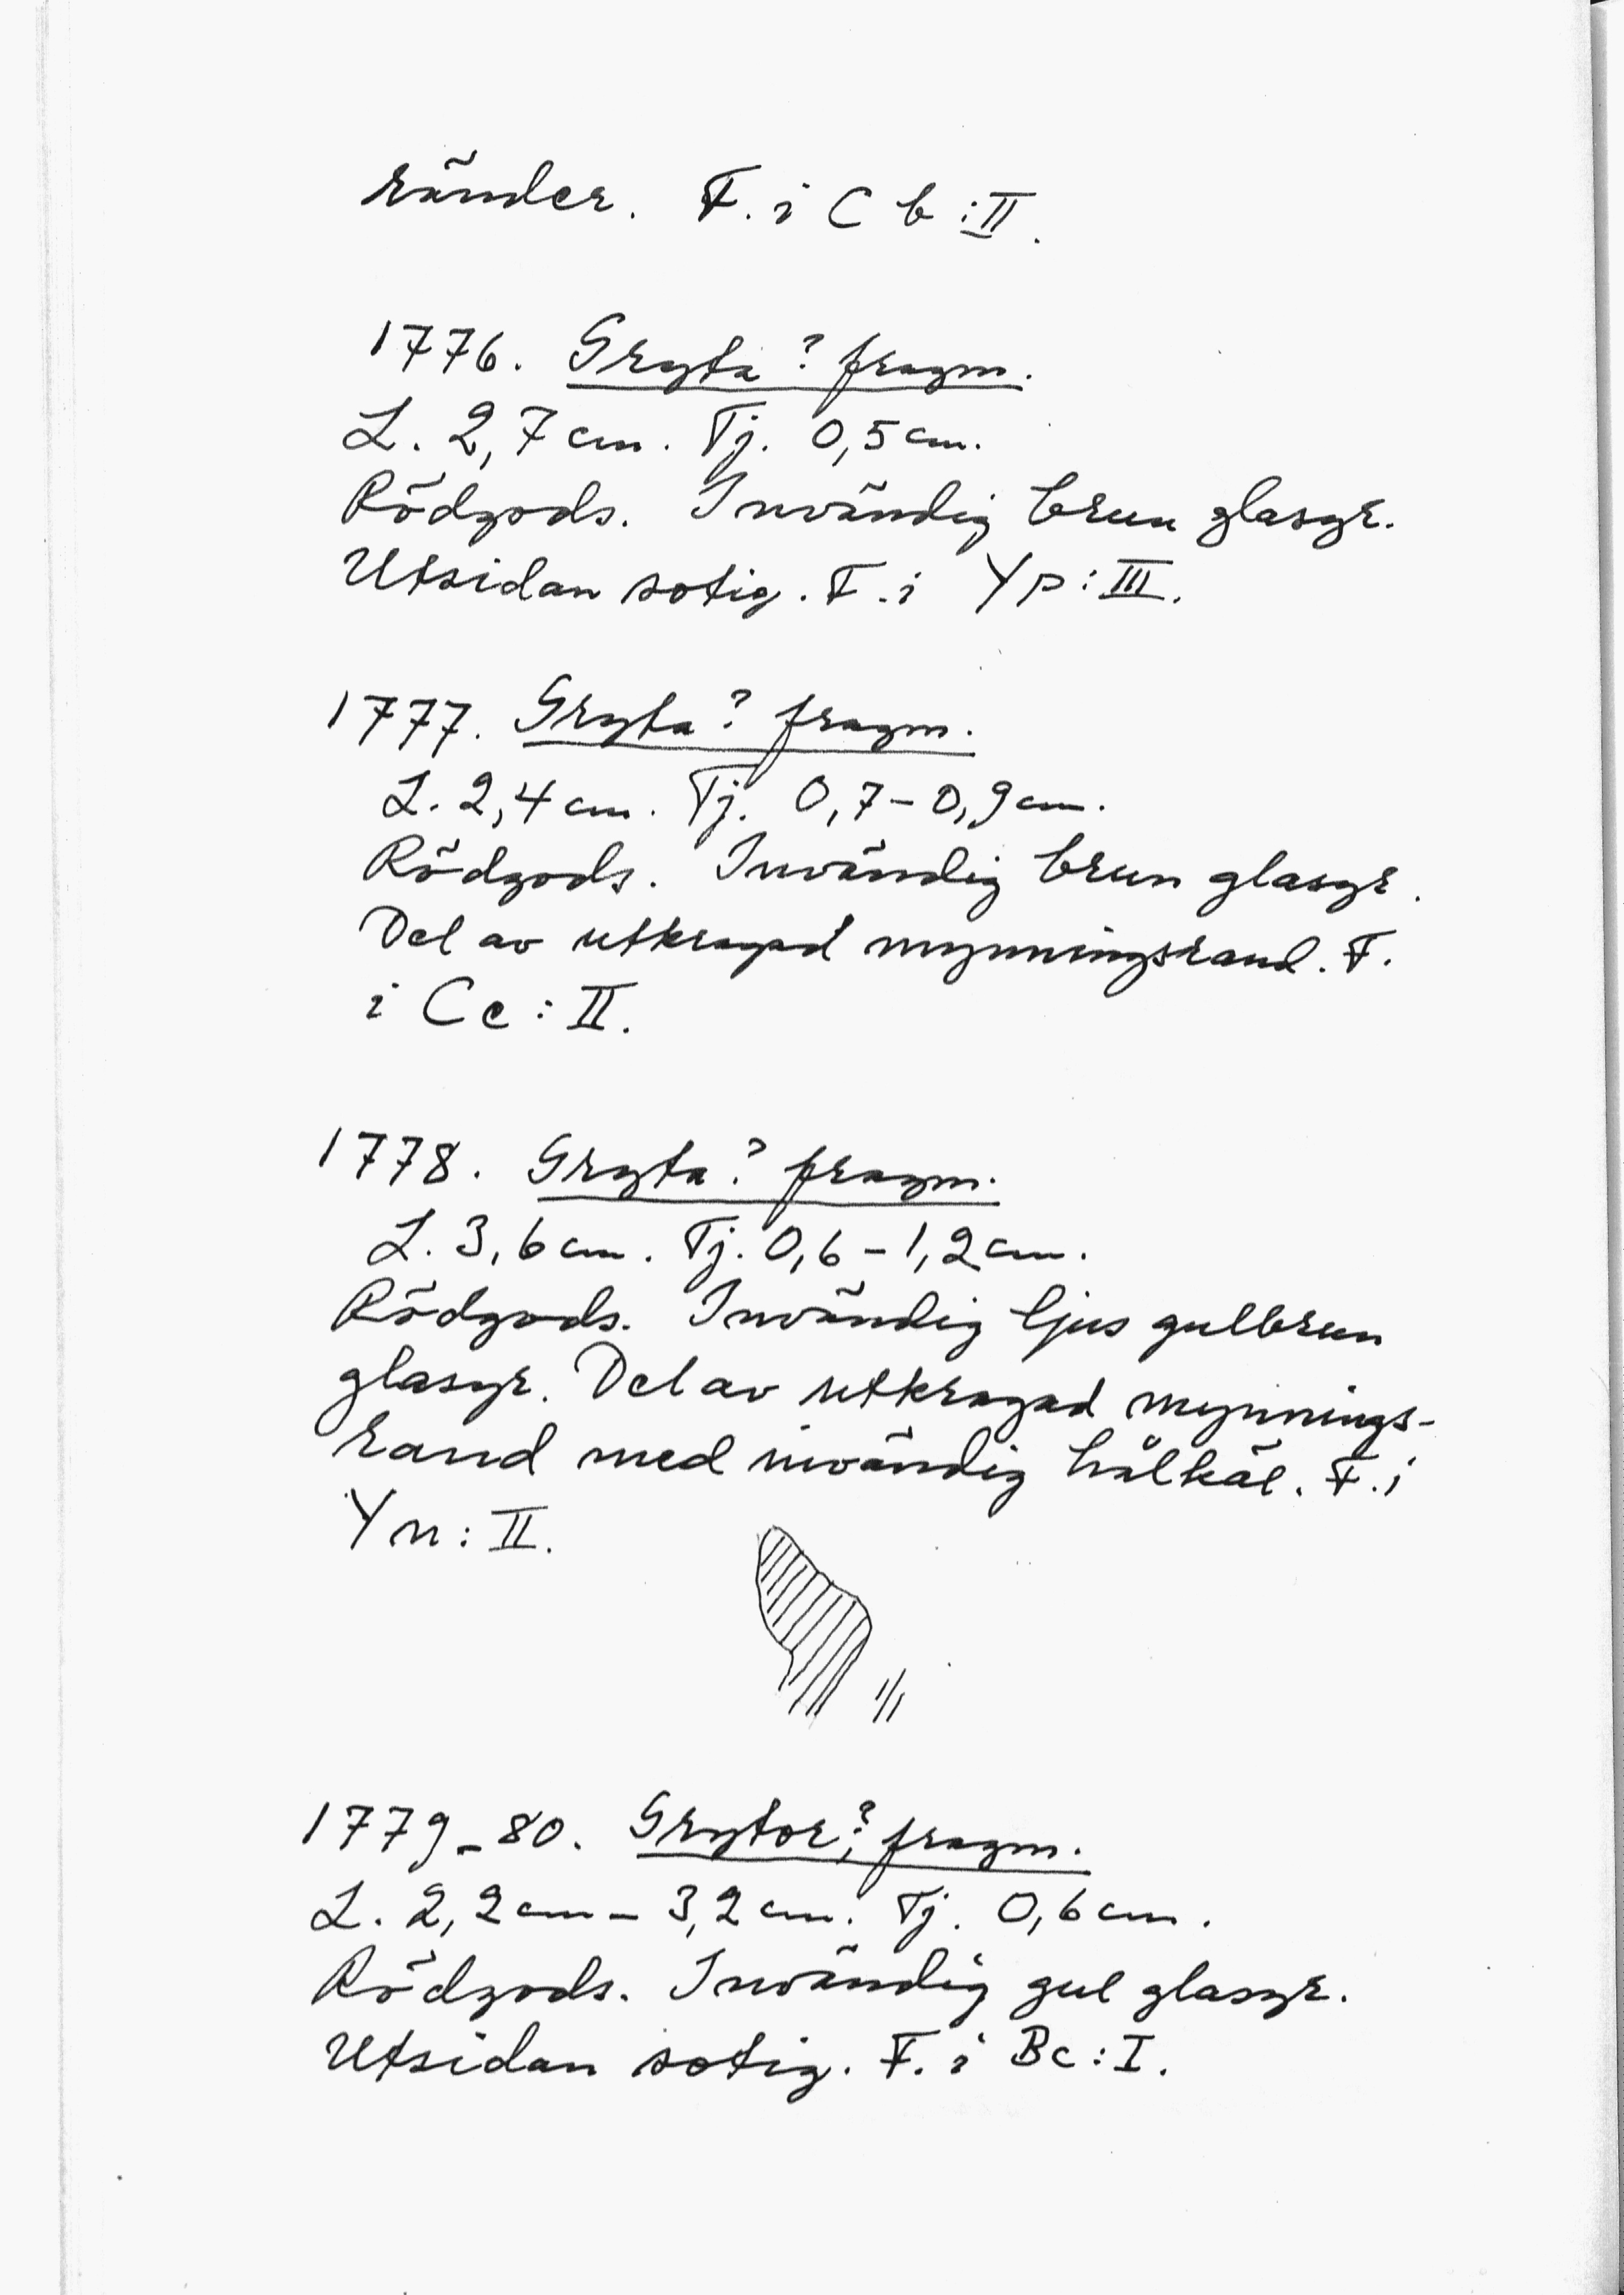 ränder. F. i Cb:II.
1776. Gryta? fragm.
L. 2,7 cm. Tj. 0,5 cm.
Rödgods. Invändig brun glasyr.
Utsidan sotig. F. i Yp:III.
1777. Gryta? fragm.
L. 2,4 cm. Tj. 0,7-0,9 cm.
Rödgods. Invändig brun glasyr.
Del av utkragad mynningsrand. F.
i Cc:II.
1778. Gryta? fragm.
L. 3,6 cm. Tj. 0,6-1,2 cm.
Rödgods. Invändig ljus gulbrun
glasyr. Del av utkragad mynnings-
rand med invändig hålkäl. F. i
Yn:II.
1/1
1779-80. Grytor?, fragm.
L. 2,2 cm - 3,2 cm. Tj. 0,6 cm.
Rödgods. Invändig gul glasyr.
Utsidan sotig. F. i Bc:I.